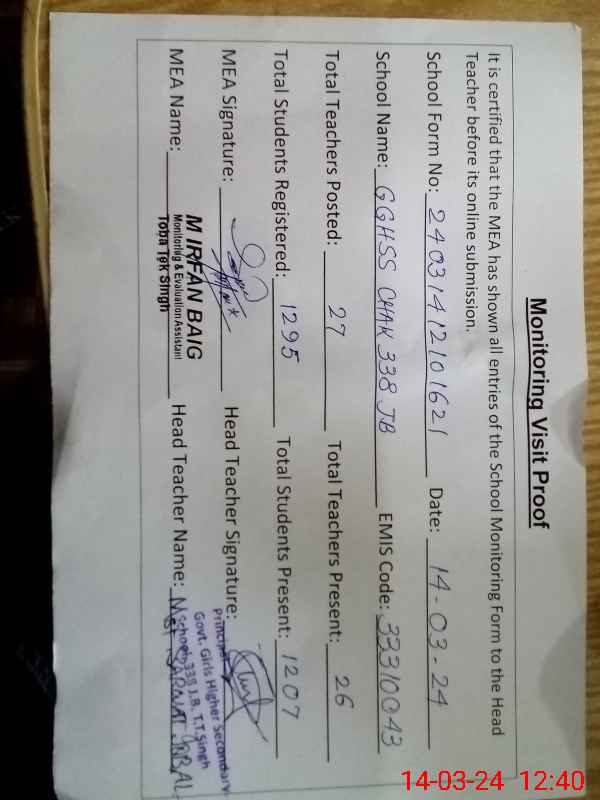 Monitoring Visit Proof
It is certified that the MEA has shown all entries of the School Monitoring Form to the Head
Teacher before its online submission.
School Form No: 24031412101621 Date: 14-03-24
School Name: GGHSS CHAK 338 JB EMIS Code: 33310043
Total Teachers Posted: 27 Total Teachers Present: 26
Total Students Registered: 1295 Total Students Present: 1207
MEA Signature: Head Teacher Signature:
MEA Name: Head Teacher Name:
M IRFAN BAIG
Monitoring & Evaluation Assistant
Toba Tek Singh
Principal
Govt. Girls Higher Secondary
School 338 J.B. T.T.Singh
14-03-24 12:40